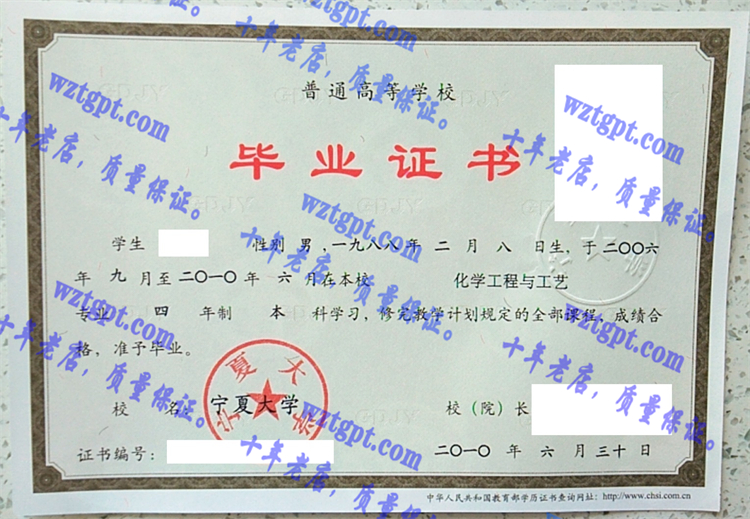 普通高等学校
毕业证书
学生 性别 男 ,一九八八年 二 月 八 日生, 于 二〇〇六
年 九 月至 二〇一〇 年 六 月在本校 化学工程与工艺
专业 四 年制 本 科学习, 修完教学计划规定的全部课程, 成绩合
格, 准予毕业。
校 名: 宁夏大学 校(院)长
证书编号: 二〇一〇 年 六 月 三十 日
中华人民共和国教育部学历证书查询网址: http://www.chsi.com.cn
宁夏大学
wztgpt.com
十年老店,质量保证。
wztgpt.com
十年老店,质量保证。
wztgpt.com
十年老店,质量保证。
wztgpt.com
十年老店,质量保证。
wztgpt.com
十年老店,质量保证。
wztgpt.com
十年老店,质量保证。